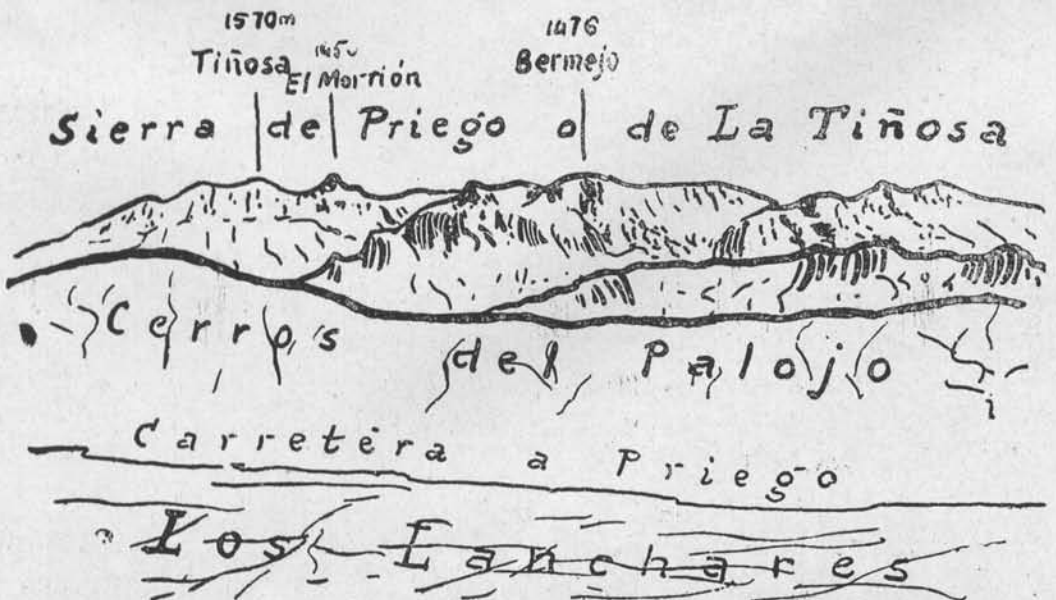 1570m
1476
Tiñosa
El Morrión
Bermejo
Sierra de Priego o de La Tiñosa
Cerros
del Palojo
Carretera a Priego
Los Lanchares